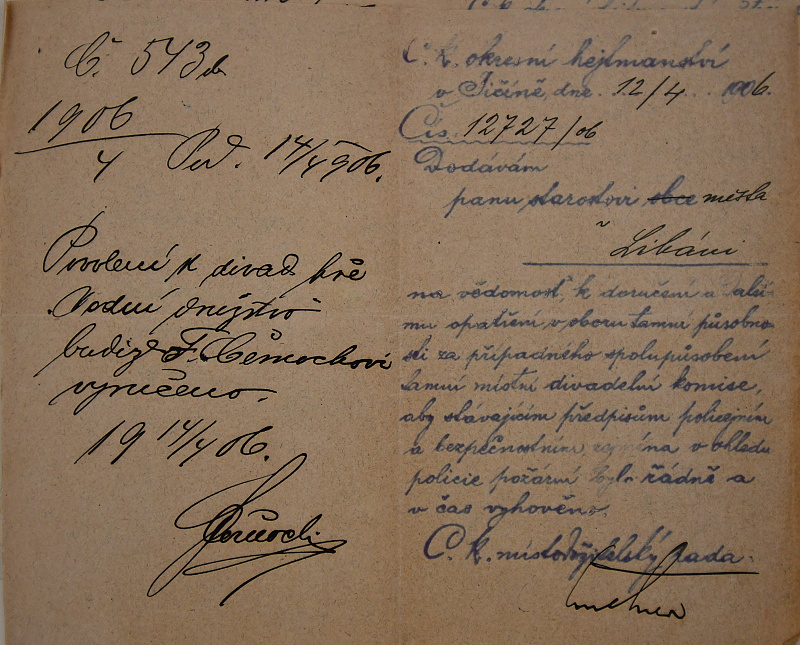 Č. 543
1906
4 14/4 1906.
Povolení k divad. hře
"Vodní družstvo"
budiž F. Černochovi
vyručeno.
19 14/4 06.
C. k. okresní hejtmanství
v Jičíně, dne 12/4 1906.
Čís. 12727/06
Dodávám
panu starostovi obce města
v Libáni
na vědomost, k doručení a další-
mu opatření, v oboru tamní působno-
sti za případného spolupůsobení
tamní místní divadelní komise,
aby stávajícím předpisům policejním
a bezpečnostním, zejména v ohledu
policie požární bylo řádně a
v čas vyhověno.
C. k. místodržitelský rada